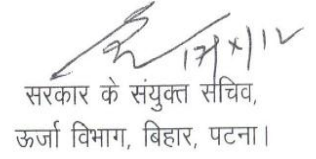 17/x/12
सरकार के संयुक्त सचिव,
ऊर्जा विभाग, बिहार, पटना।